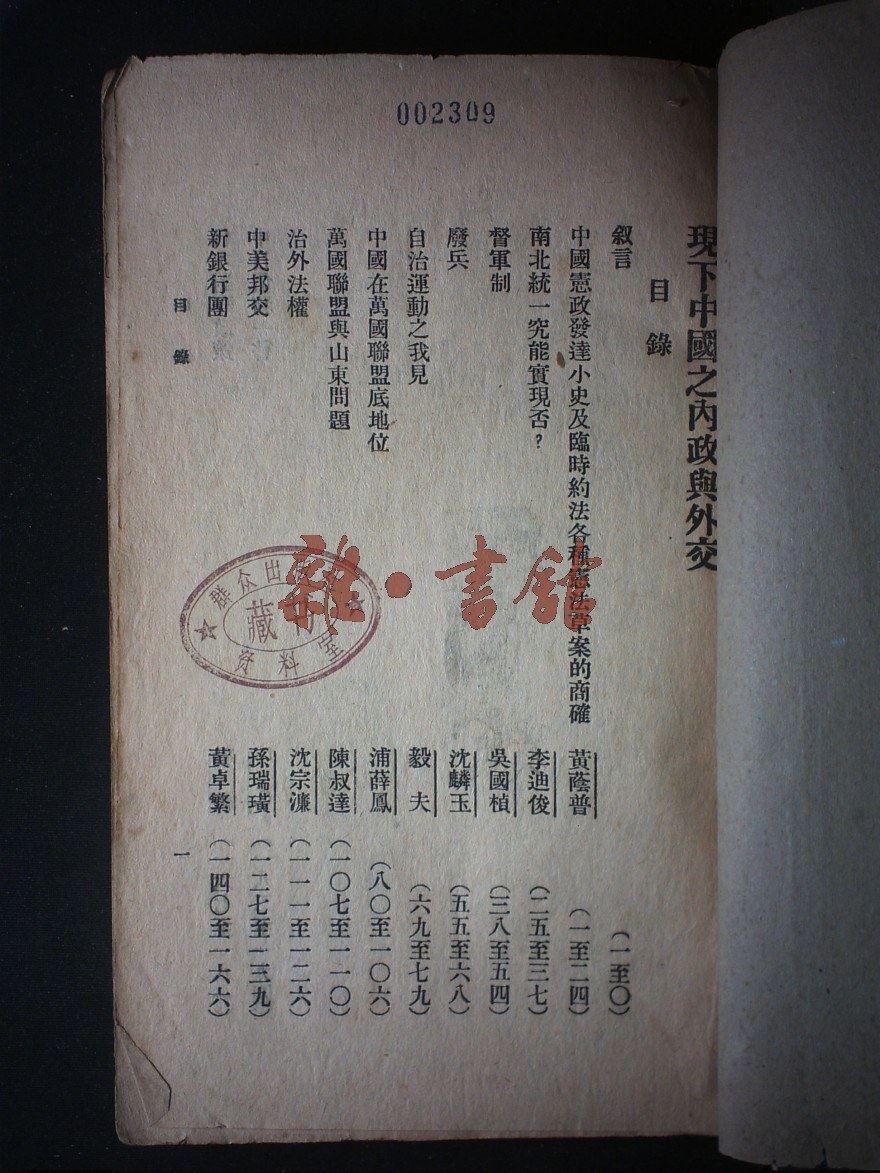 002309
現下中國之內政與外交
目錄
叙言 (一至〇)
中國憲政發達小史及臨時約法各種憲法草案的商確 黃蔭普 (一至二四)
南北統一究能實現否? 李迪俊 (二五至三七)
督軍制 吳國楨 (三八至五四)
廢兵 沈麟玉 (五五至六八)
自治運動之我見 毅夫 (六九至七九)
中國在萬國聯盟底地位 浦薛鳳 (八〇至一〇六)
萬國聯盟與山東問題 陳叔達 (一〇七至一一〇)
治外法權 沈宗濂 (一一一至一二六)
中美邦交 孫瑞璜 (一二七至一三九)
新銀行團 黃卓繁 (一四〇至一六六)
目錄 一
群众出
藏
资料室
雜·書館